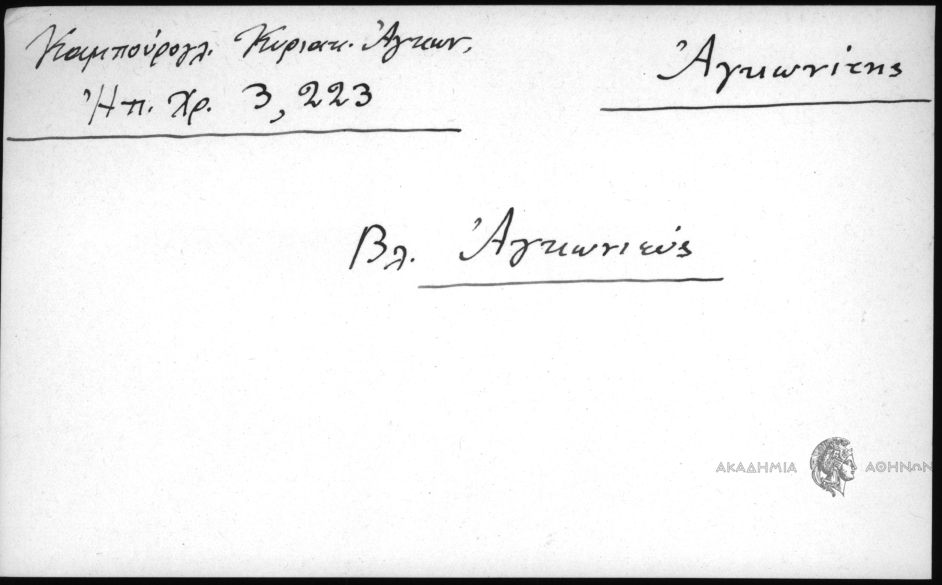 Καμπούρογλ. Κυριακ. Ἀγκων.
Ἠπ. Χρ. 3, 223
Ἀγκωνίτης
Βλ. Ἀγκωνιεύς
ΑΚΑΔΗΜΙΑ ΑΘΗΝΩΝ